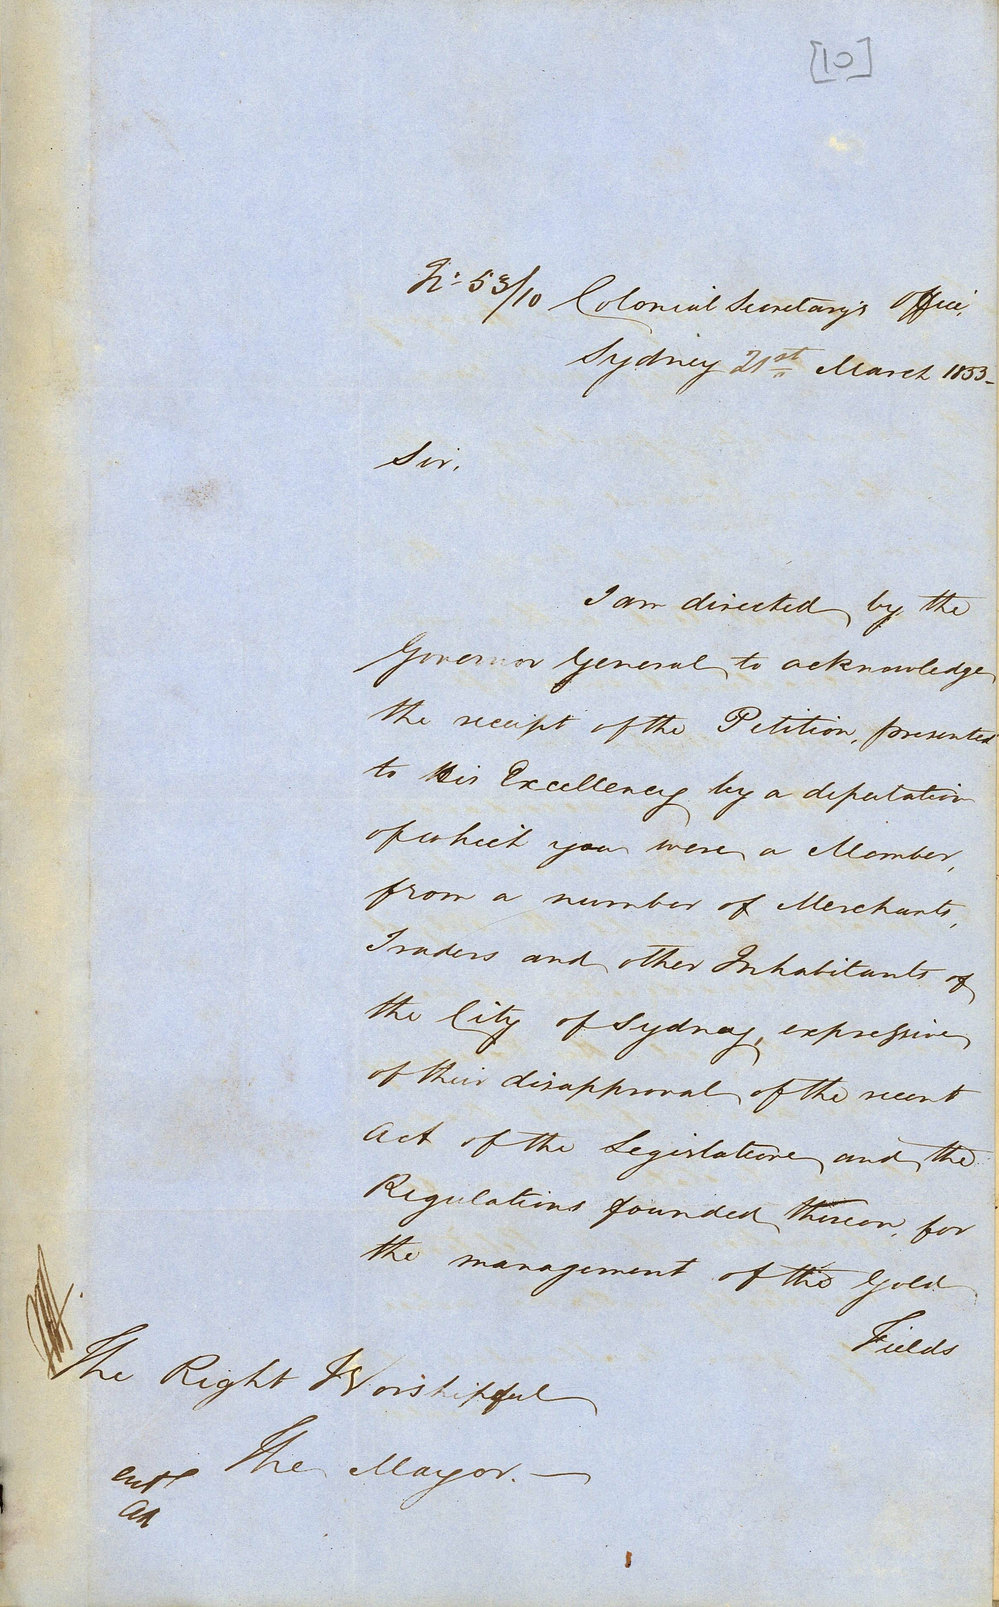 [10]
No. 53/10 Colonial Secretary's Office,
Sydney 21st March 1853-
Sir,
I am directed by the
Governor General to acknowledge
the receipt of the Petition, presented
to His Excellency by a deputation
of which you were a Member,
from a number of Merchants,
Traders and other Inhabitants of
the City of Sydney, expressive
of their disapproval of the recent
Act of the Legislature and the
Regulations founded thereon, for
the management of the Gold
Fields
The Right Worshipful
The Mayor. —